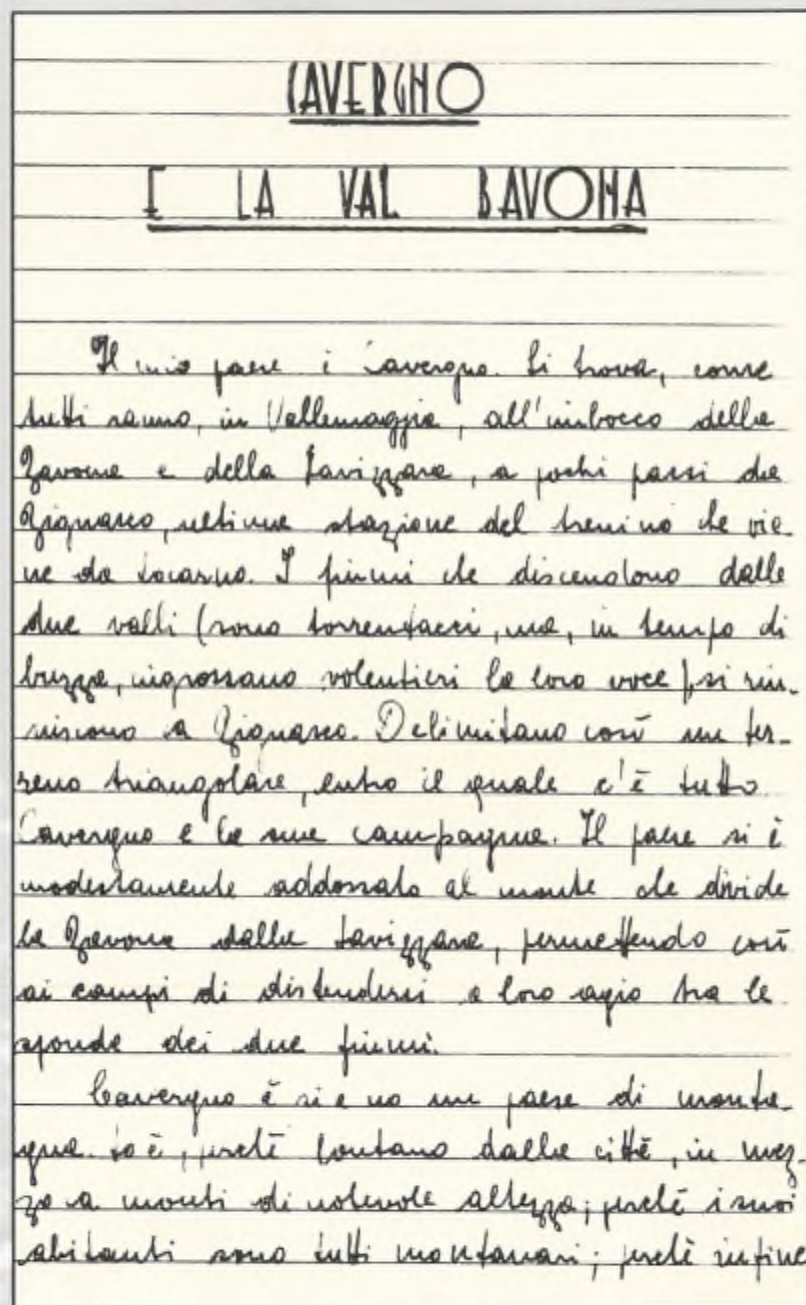 CAVERGNO
E LA VAL BAVONA
Il mio paese è Cavergno. Si trova, come
tutti sanno, in Vallemaggia, all'imbocco della
Bavona e della Lavizzara, a pochi passi da
Bignasco, ultima stazione del trenino che vie-
ne da Locarno. I fiumi che discendono dalle
due valli (sono torrentacci, ma, in tempo di
buzza, ingrossano volentieri la loro voce), si riu-
niscono a Bignasco. Delimitano così un ter-
reno triangolare, entro il quale c'è tutto
Cavergno e la sua campagna. Il paese si è
modestamente addossato al monte che divide
la Bavona dalla Lavizzara, permettendo così
ai campi di distendersi a loro agio tra le
sponde dei due fiumi.
Cavergno è sì e no un paese di monta-
gna. Lo è, perchè lontano dalla città, in mez-
zo a monti di notevole altezza; perchè i suoi
abitanti sono tutti montanari; perchè infine